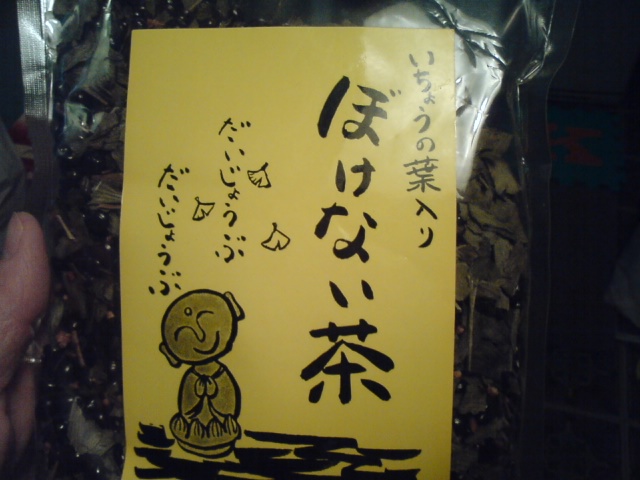 いちょうの葉入り
ぼけない茶
だいじょうぶ
だいじょうぶ